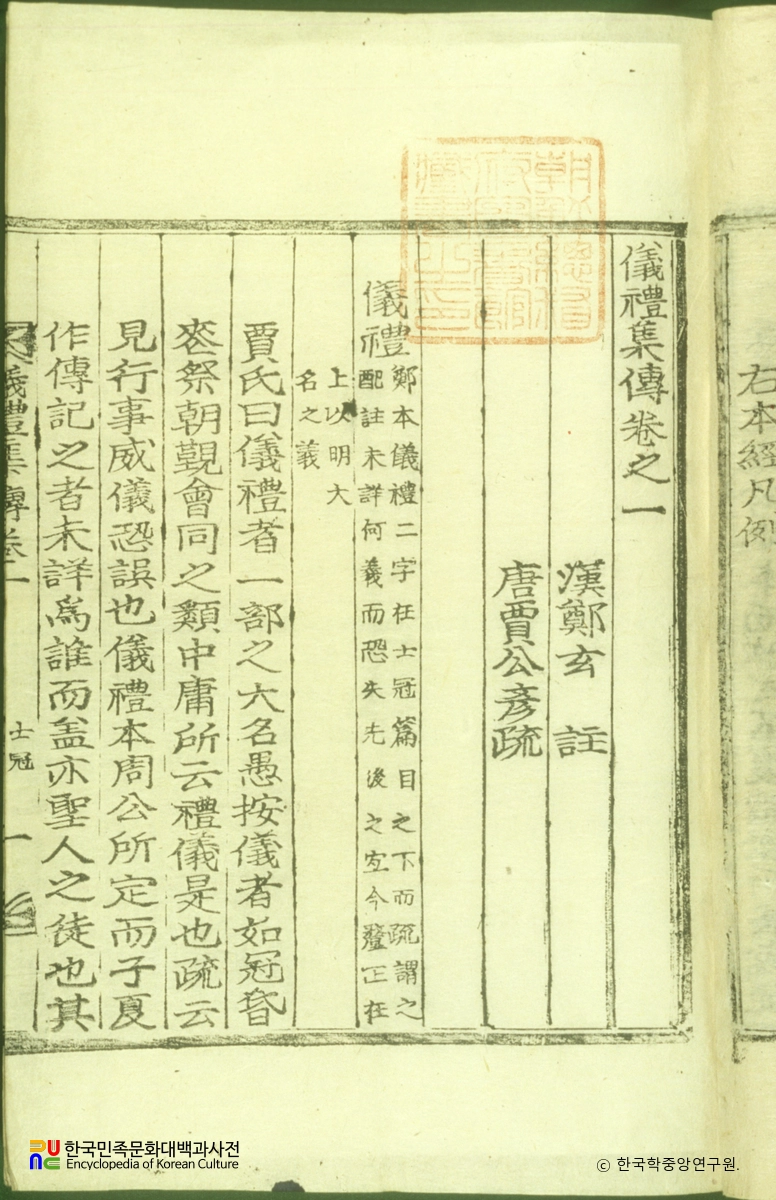 右本經凡例
朝鮮總督
府圖書館
藏書之印
儀禮集傳卷之一
漢鄭玄 註
唐賈公彦疏
儀禮
鄭本儀禮二字在士冠篇目之下而疏謂之
配註未詳何義而恐失先後之宜今釐正在
上以明大
名之義
賈氏曰儀禮者一部之大名愚按儀者如冠昏
喪祭朝覲會同之類中庸所云禮儀是也疏云
見行事威儀恐誤也儀禮本周公所定而子夏
作傳記之者未詳爲誰而盖亦聖人之徒也其
儀禮集傳卷一 士冠 一
한국민족문화대백과사전
Encyclopedia of Korean Culture
ⓒ 한국학중앙연구원.